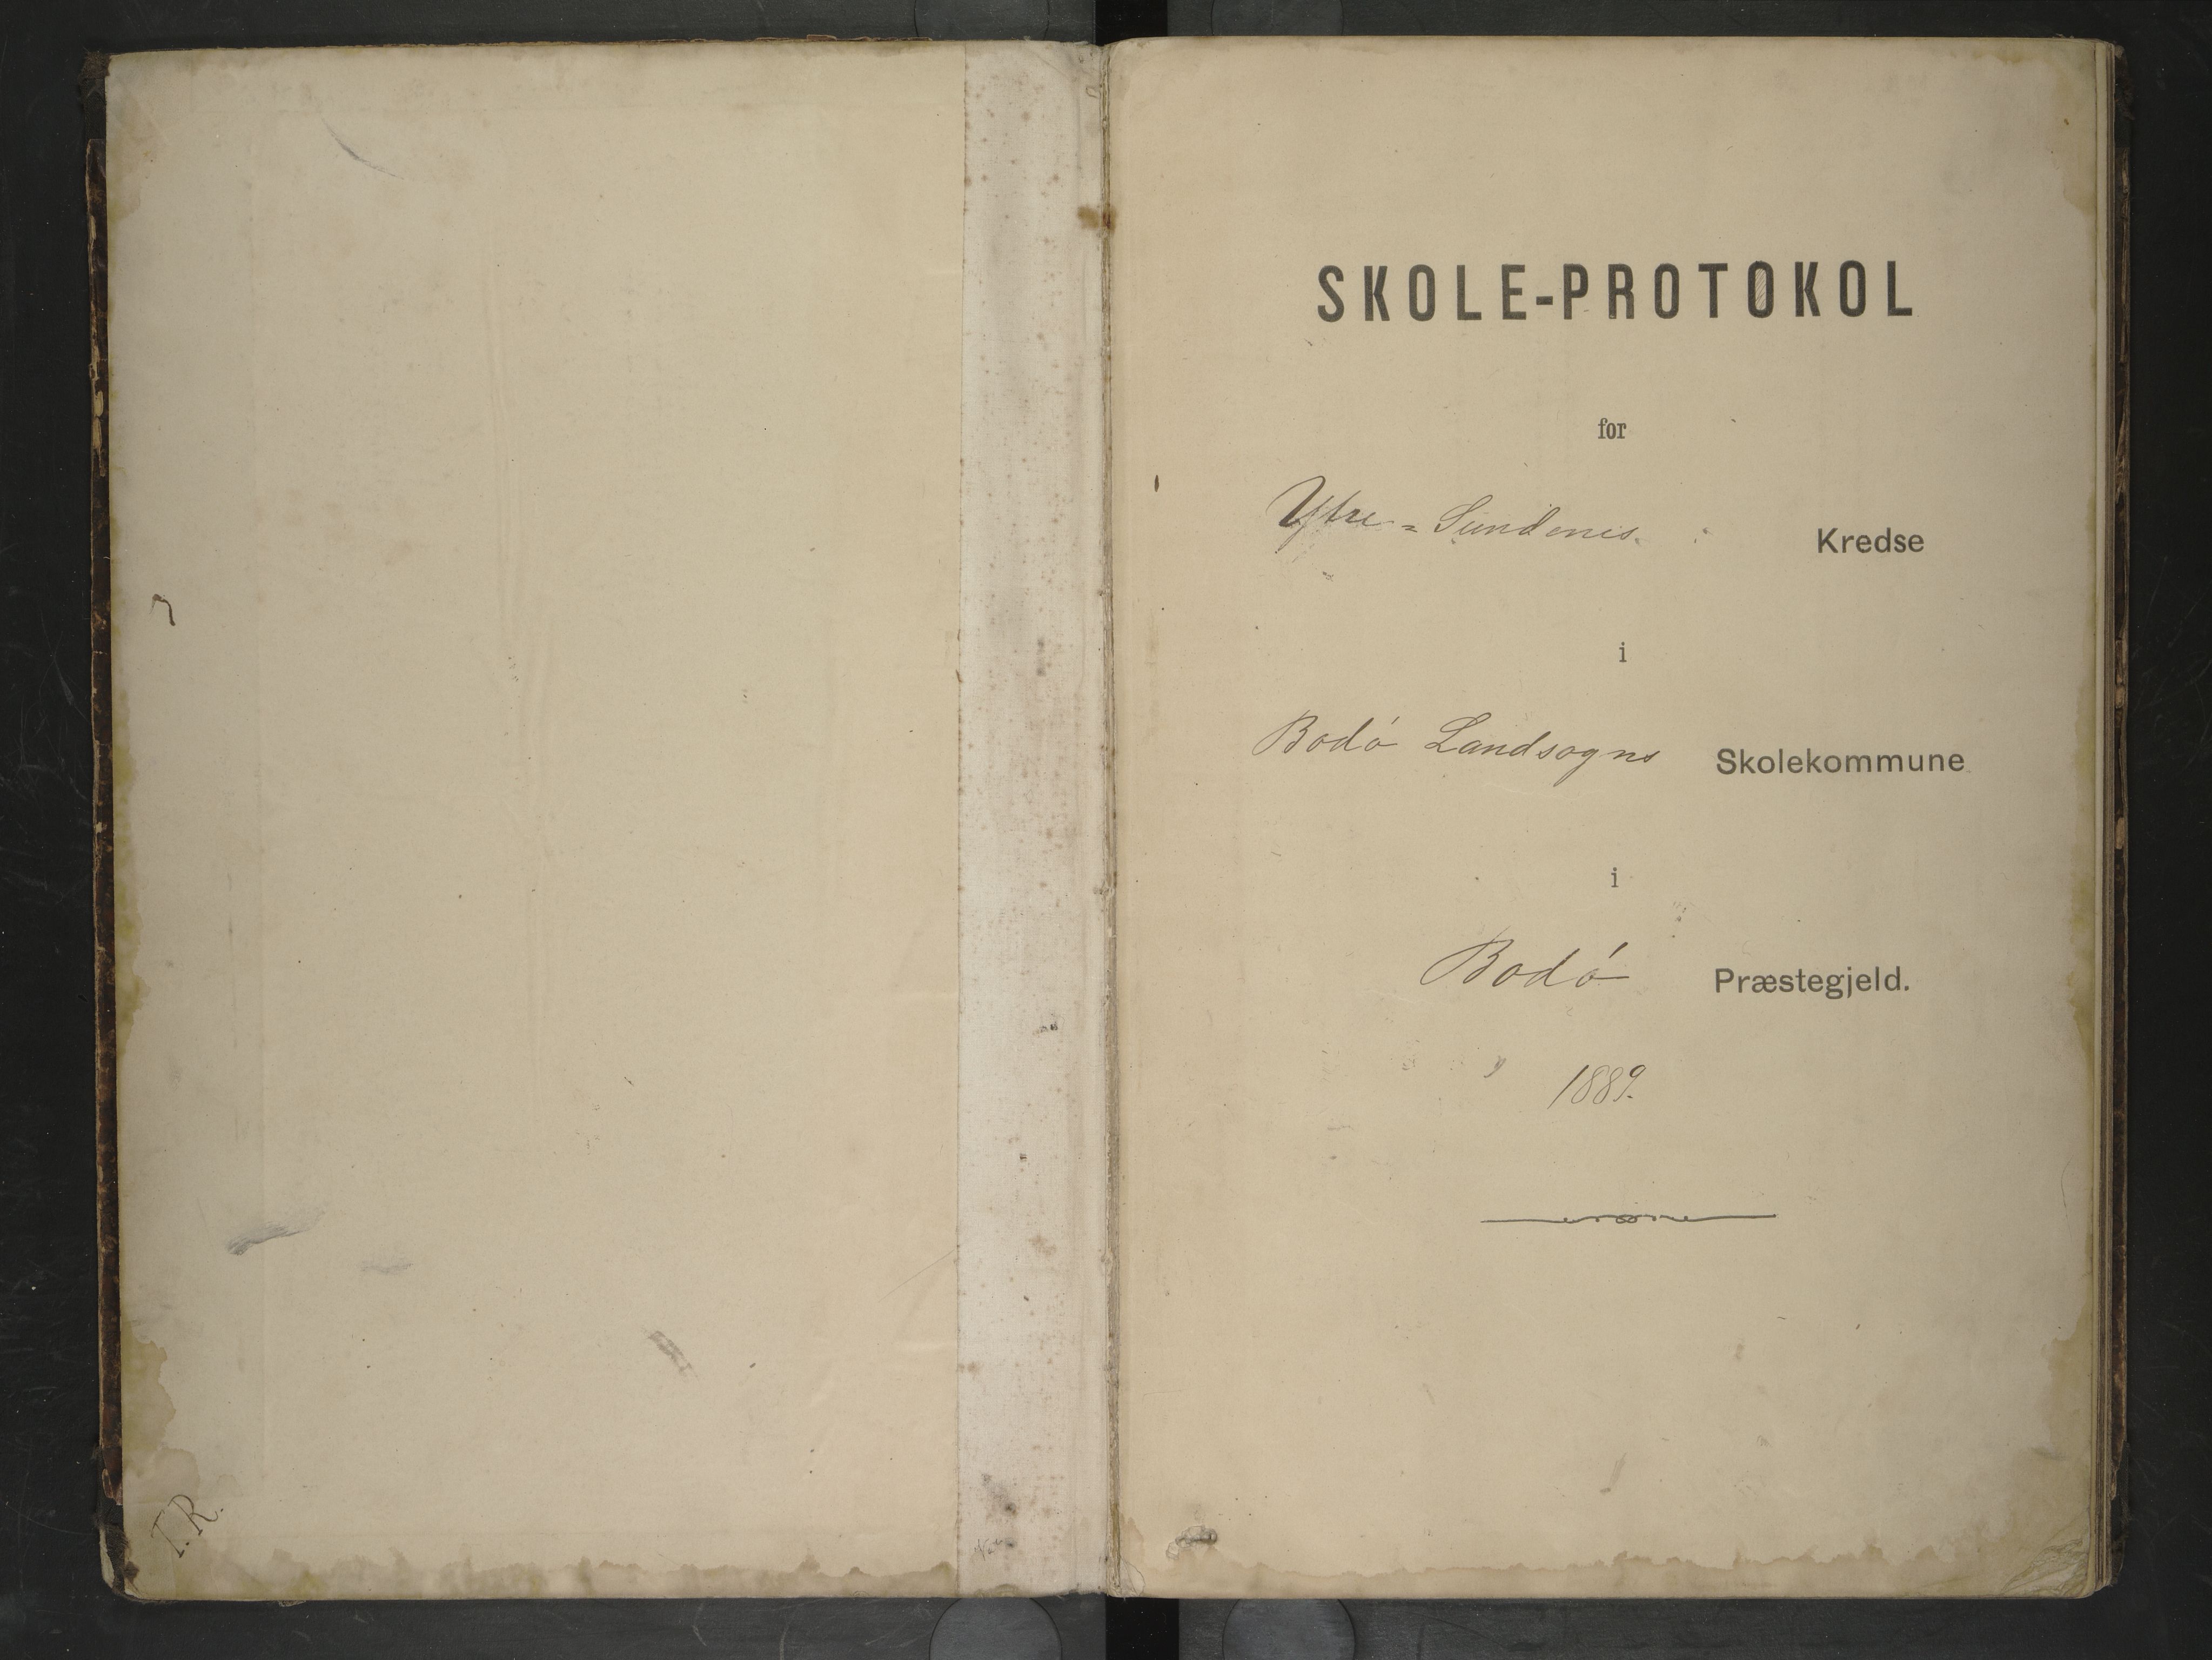 I.R.
SKOLE-PROTOKOL
for
Ytre = Sundenes. Kredse
i
Bodó Landsogns Skolekommune
i
Bodó Præstegjeld.
1889.